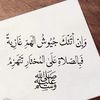 وَإِن أَتَتْكَ جُيُوشُ الهَمِّ غَازِيَةً
فَبِالصَّلاةِ عَلَى المُخْتَارِ تَنْهَزِمُ
ﷺ